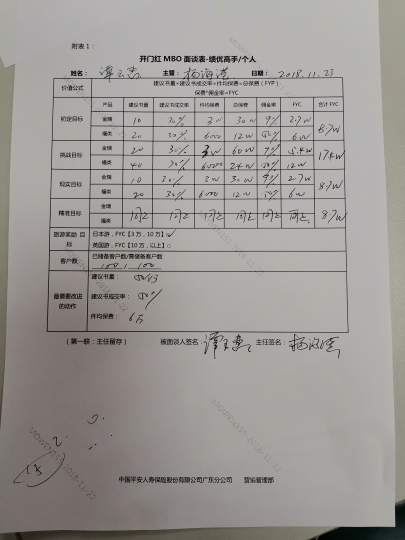 附表1：
开门红MBO面谈表-绩优高手/个人
姓名： 主管：杨海滢 日期：2018.11.23
价值公式 建议书量*建议书成交率*件均保费=总保费（FYP）
保费*佣金率=FYC
产品 建议书量 建议书成交率 件均保费 总保费 佣金率 FYC 合计FYC
既定目标 金瑞 10 30% 3W 30W 9% 2.7W 8.7W
福类 20 30% 6000 12W 50% 6W
挑战目标 金瑞 20 30% 3W 60W 9% 5.4W 17.4W
福类 40 30% 6000 24W 50% 12W
现实目标 金瑞 10 30% 3W 30W 9% 2.7W 8.7W
福类 20 30% 6000 12W 50% 6W
精准目标 金瑞 同上 同上 同上 同上 同上 同上 8.7W
福类
旅游奖励目标 日本游，FYC【3万，10万】
英国游，FYC【10万，以上】○
客户数： 已储备客户数/需储备客户数
100 / 100
最需要改进的动作 建议书量：
建议书成交率：50%
件均保费：6万
（第一联：主任留存） 被面谈人签名： 主任签名：杨海滢
中国平安人寿保险股份有限公司广东分公司 营销管理部